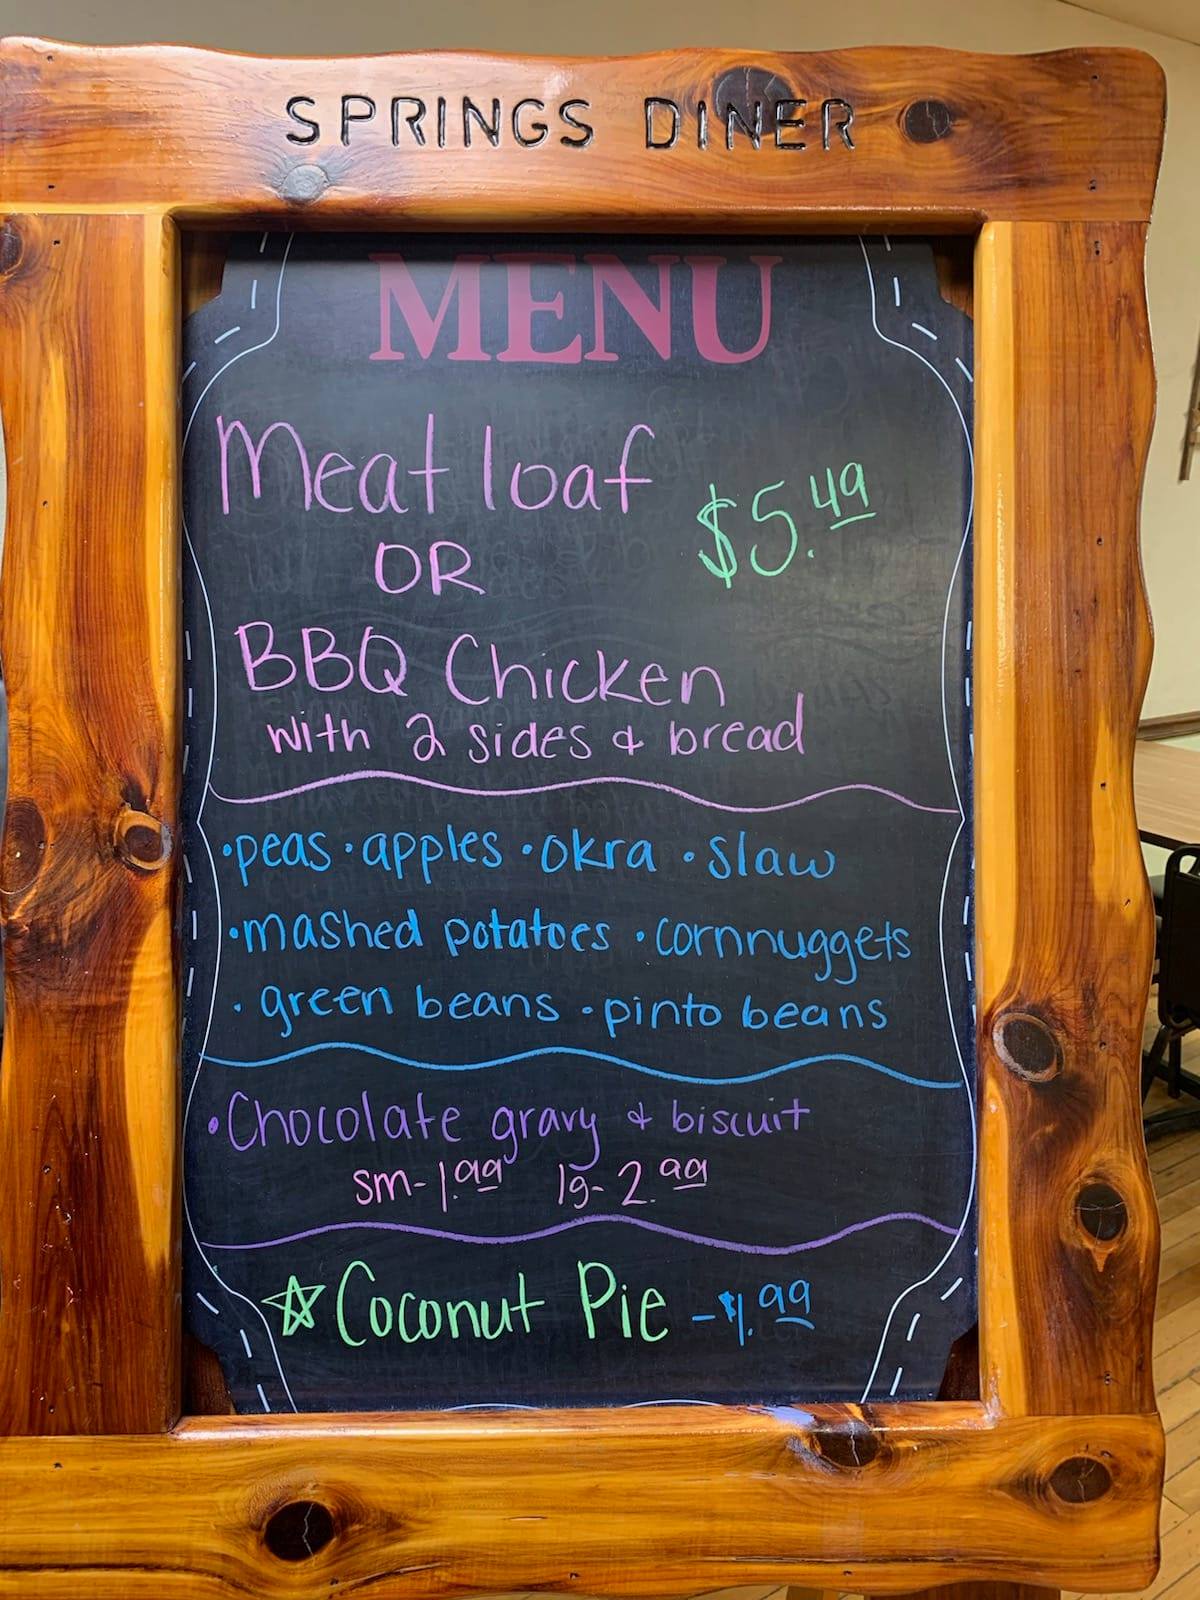 SPRINGS DINER
MENU
Meat loaf
$5.49
OR
BBQ Chicken
with 2 sides & bread
•peas •apples •okra •slaw
•mashed potatoes •cornnuggets
•green beans •pinto beans
•Chocolate gravy & biscuit
sm-1.99 lg-2.99
☆Coconut Pie -$1.99